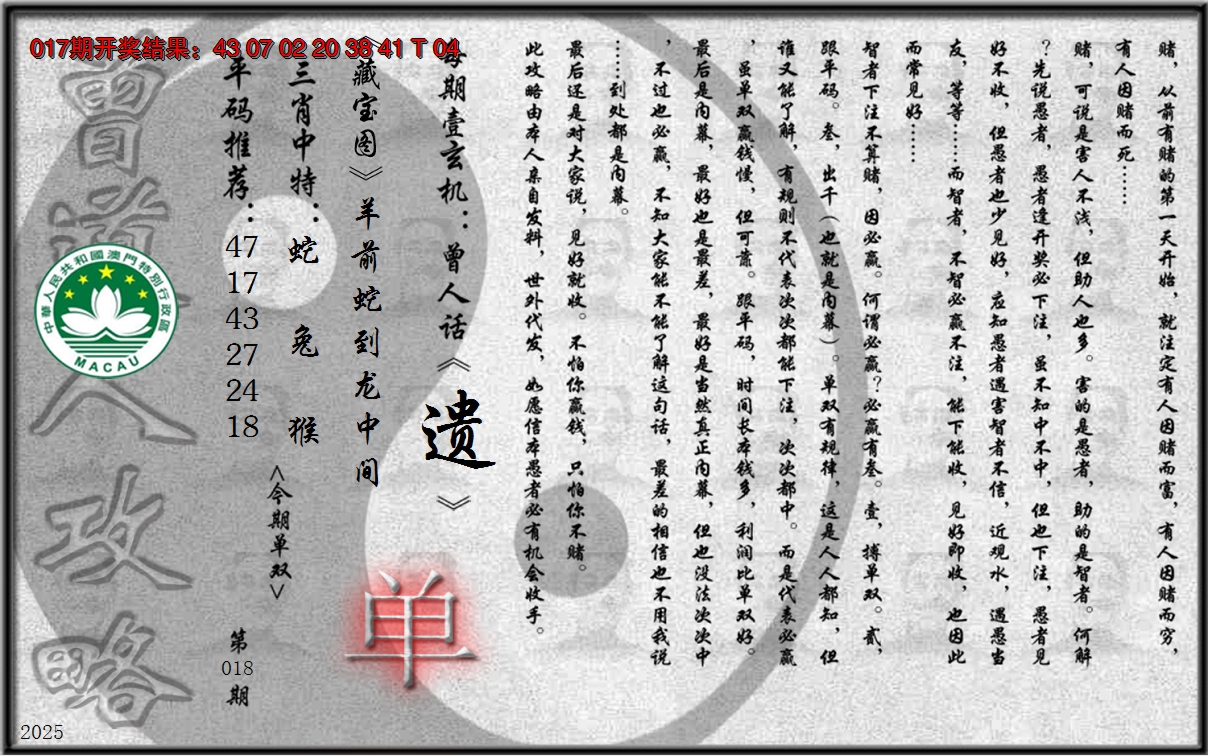 017期开奖结果：43 07 02 20 38 41 T 04
赌，从前有赌的第一天开始，就注定有人因赌而富，有人因赌而穷，
有人因赌而死……
赌，可说是害人不浅，但助人也多。害的是愚者，助的是智者。何解
？先说愚者，愚者逢开奖必下注，虽不知中不中，但也下注，愚者见
好不收，但愚者也少见好，应知愚者遇害智者不信，近观水，遇愚当
友，等等……而智者，不智必赢不注，能下能收，见好即收，也因此
而常见好……
智者下注不算赌，因必赢。何谓必赢？必赢有叁。壹，搏单双。贰，
跟平码。叁，出千（也就是内幕）。单双有规律，这是人人都知，但
谁又能了解，有规则不代表次次都能下注，次次都中。而是代表必赢
，虽单双赢钱慢，但可靠。跟平码，时间长本钱多，利润比单双好。
最后是内幕，最好也是最差，最好是当然真正内幕，但也没法次次中
，不过也必赢，不知大家能不能了解这句话，最差的相信也不用我说
……到处都是内幕。
最后还是对大家说，见好就收。不怕你赢钱，只怕你不赌。
此攻略由本人亲自发料，世外代发，如愿信本愚者必有机会收手。
每期壹玄机：曾人话《遗》
《藏宝图》羊前蛇到龙中间
单
三肖中特：蛇 兔 猴
<今期单双>
平码推荐：
47
17
43
27
24
18
第
018
期
曾道人攻略
中華人民共和國澳門特別行政區
MACAU
2025